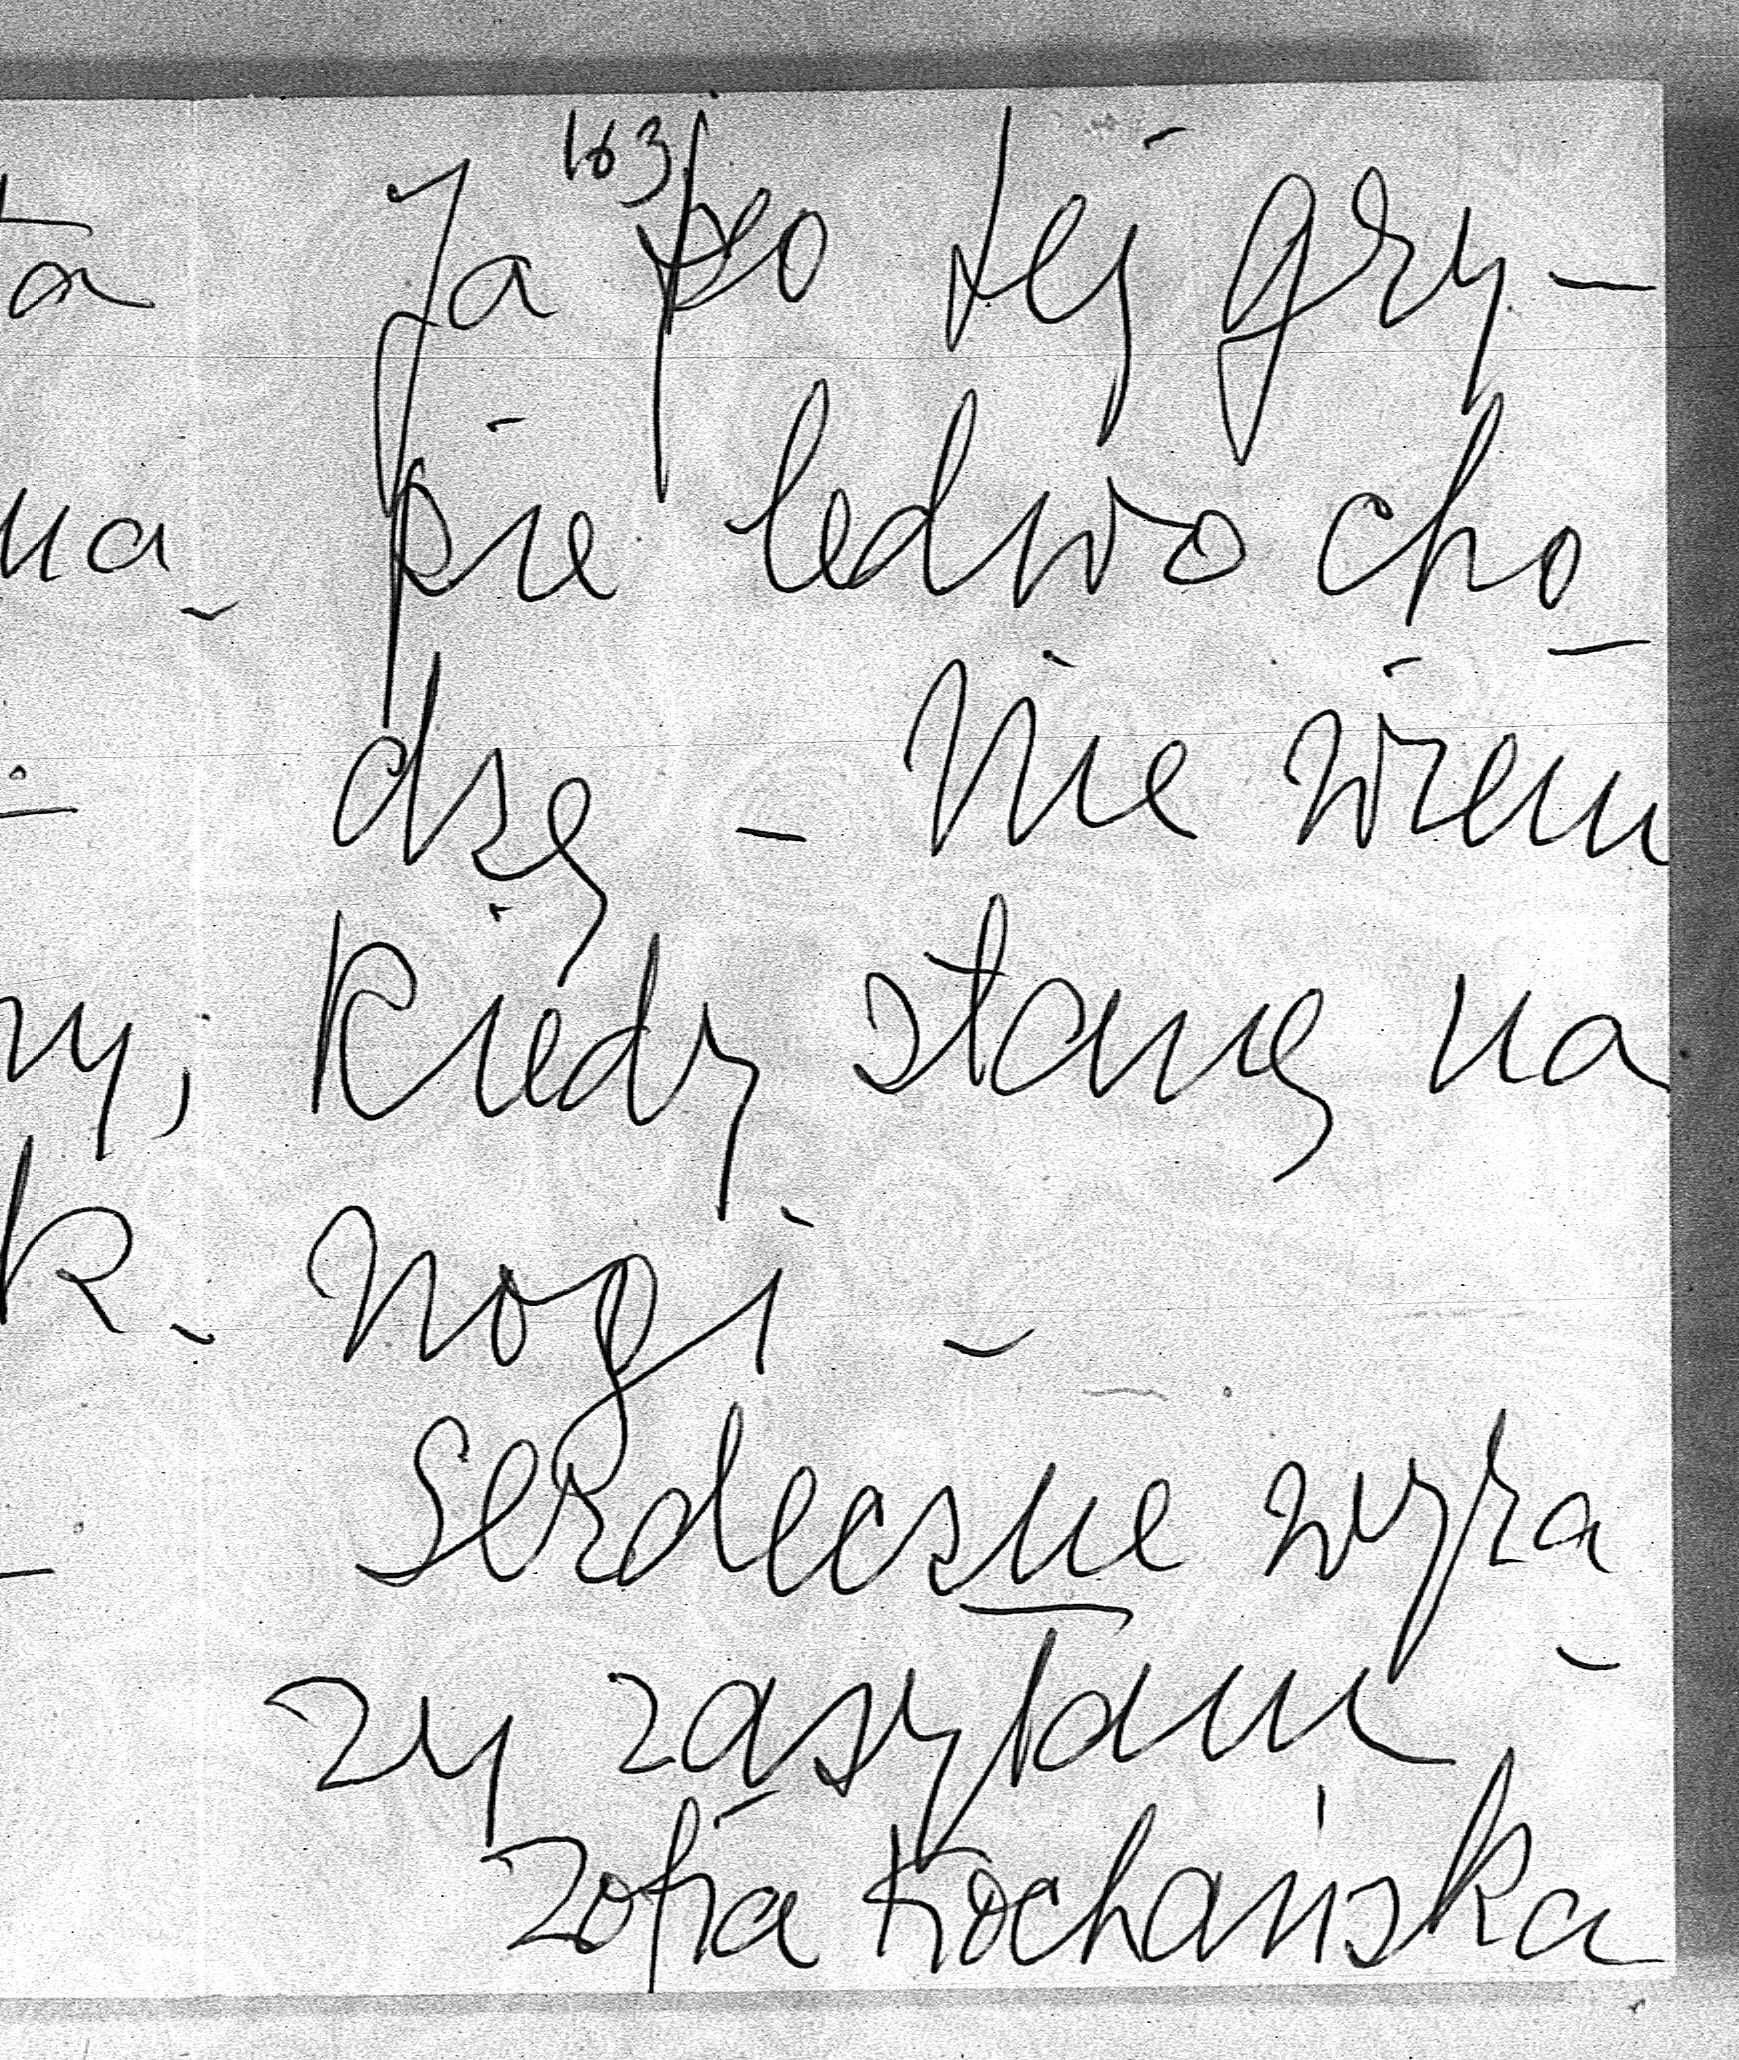 163
ta Ja po tej gry-
na - pie ledwo cho-
- dzę - Nie wiem
ny; Kiedy stanę na
k - nogi -
- Serdeczne wyra-
zy zasyłam
Zofia Kochańska